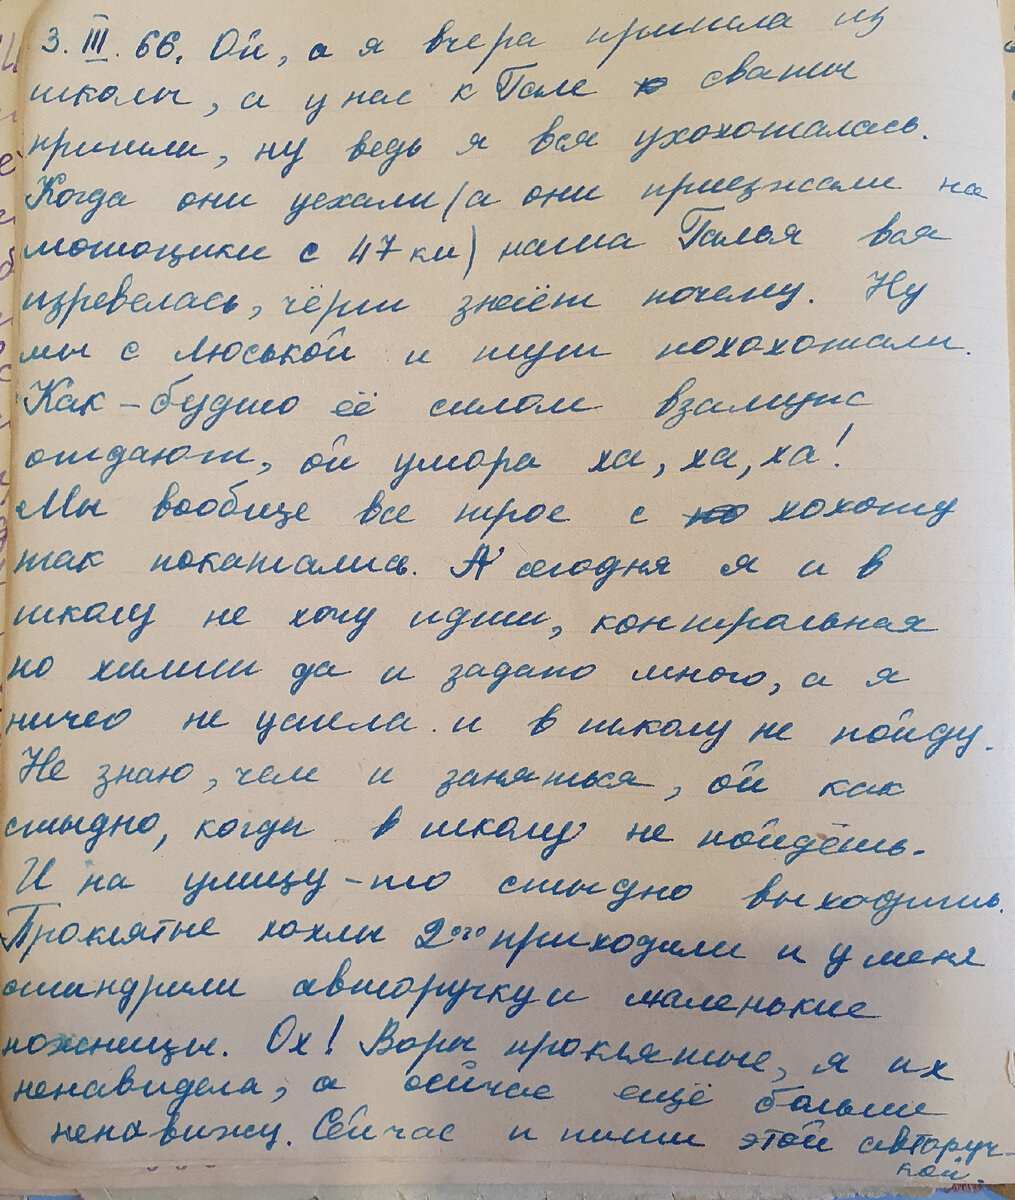 3. III. 66. Ой, а я вчера пришла из
школы, а у нас к Гале сваты
пришли, ну ведь я вся ухохоталась.
Когда они уехали (а они приезжали на
мотоцикле с 47 км) наша Галья вся
изревелась, чёрт знает почему. Ну
мы с Люськой и тут похохотали.
Как-будто её силом взамуж
отдают, ой умора ха, ха, ха!
Мы вообще все трое с хохоту
так покатались. А сегодня я и в
школу не хочу идти, контрольная
по химии да и задано много, а я
ничео не успела и в школу не пойду.
Не знаю, чем и заняться, ой как
стыдно, когда в школу не пойдёшь.
И на улицу-то стыдно выходить.
Проклятые хохлы 2ого приходили и у меня
стандрили авторучку и маленькие
ножницы. Ох! Воры проклятые, я их
ненавидела, а сейчас ещё больше
ненавижу. Сейчас и пиши этой авторуч-
кой.